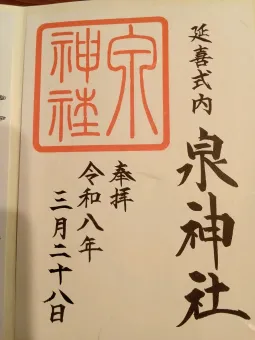 延喜式内
泉神社
奉拝
令和八年
三月二十八日
泉
神社